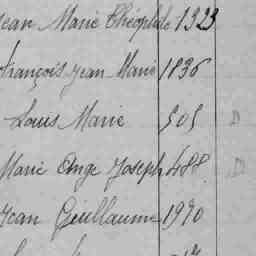 Jean Marie Théophile 1323
François Jean Marie 1836
Louis Marie 505 D
Marie Ange Joseph 488 D
Jean Guillaume 1990